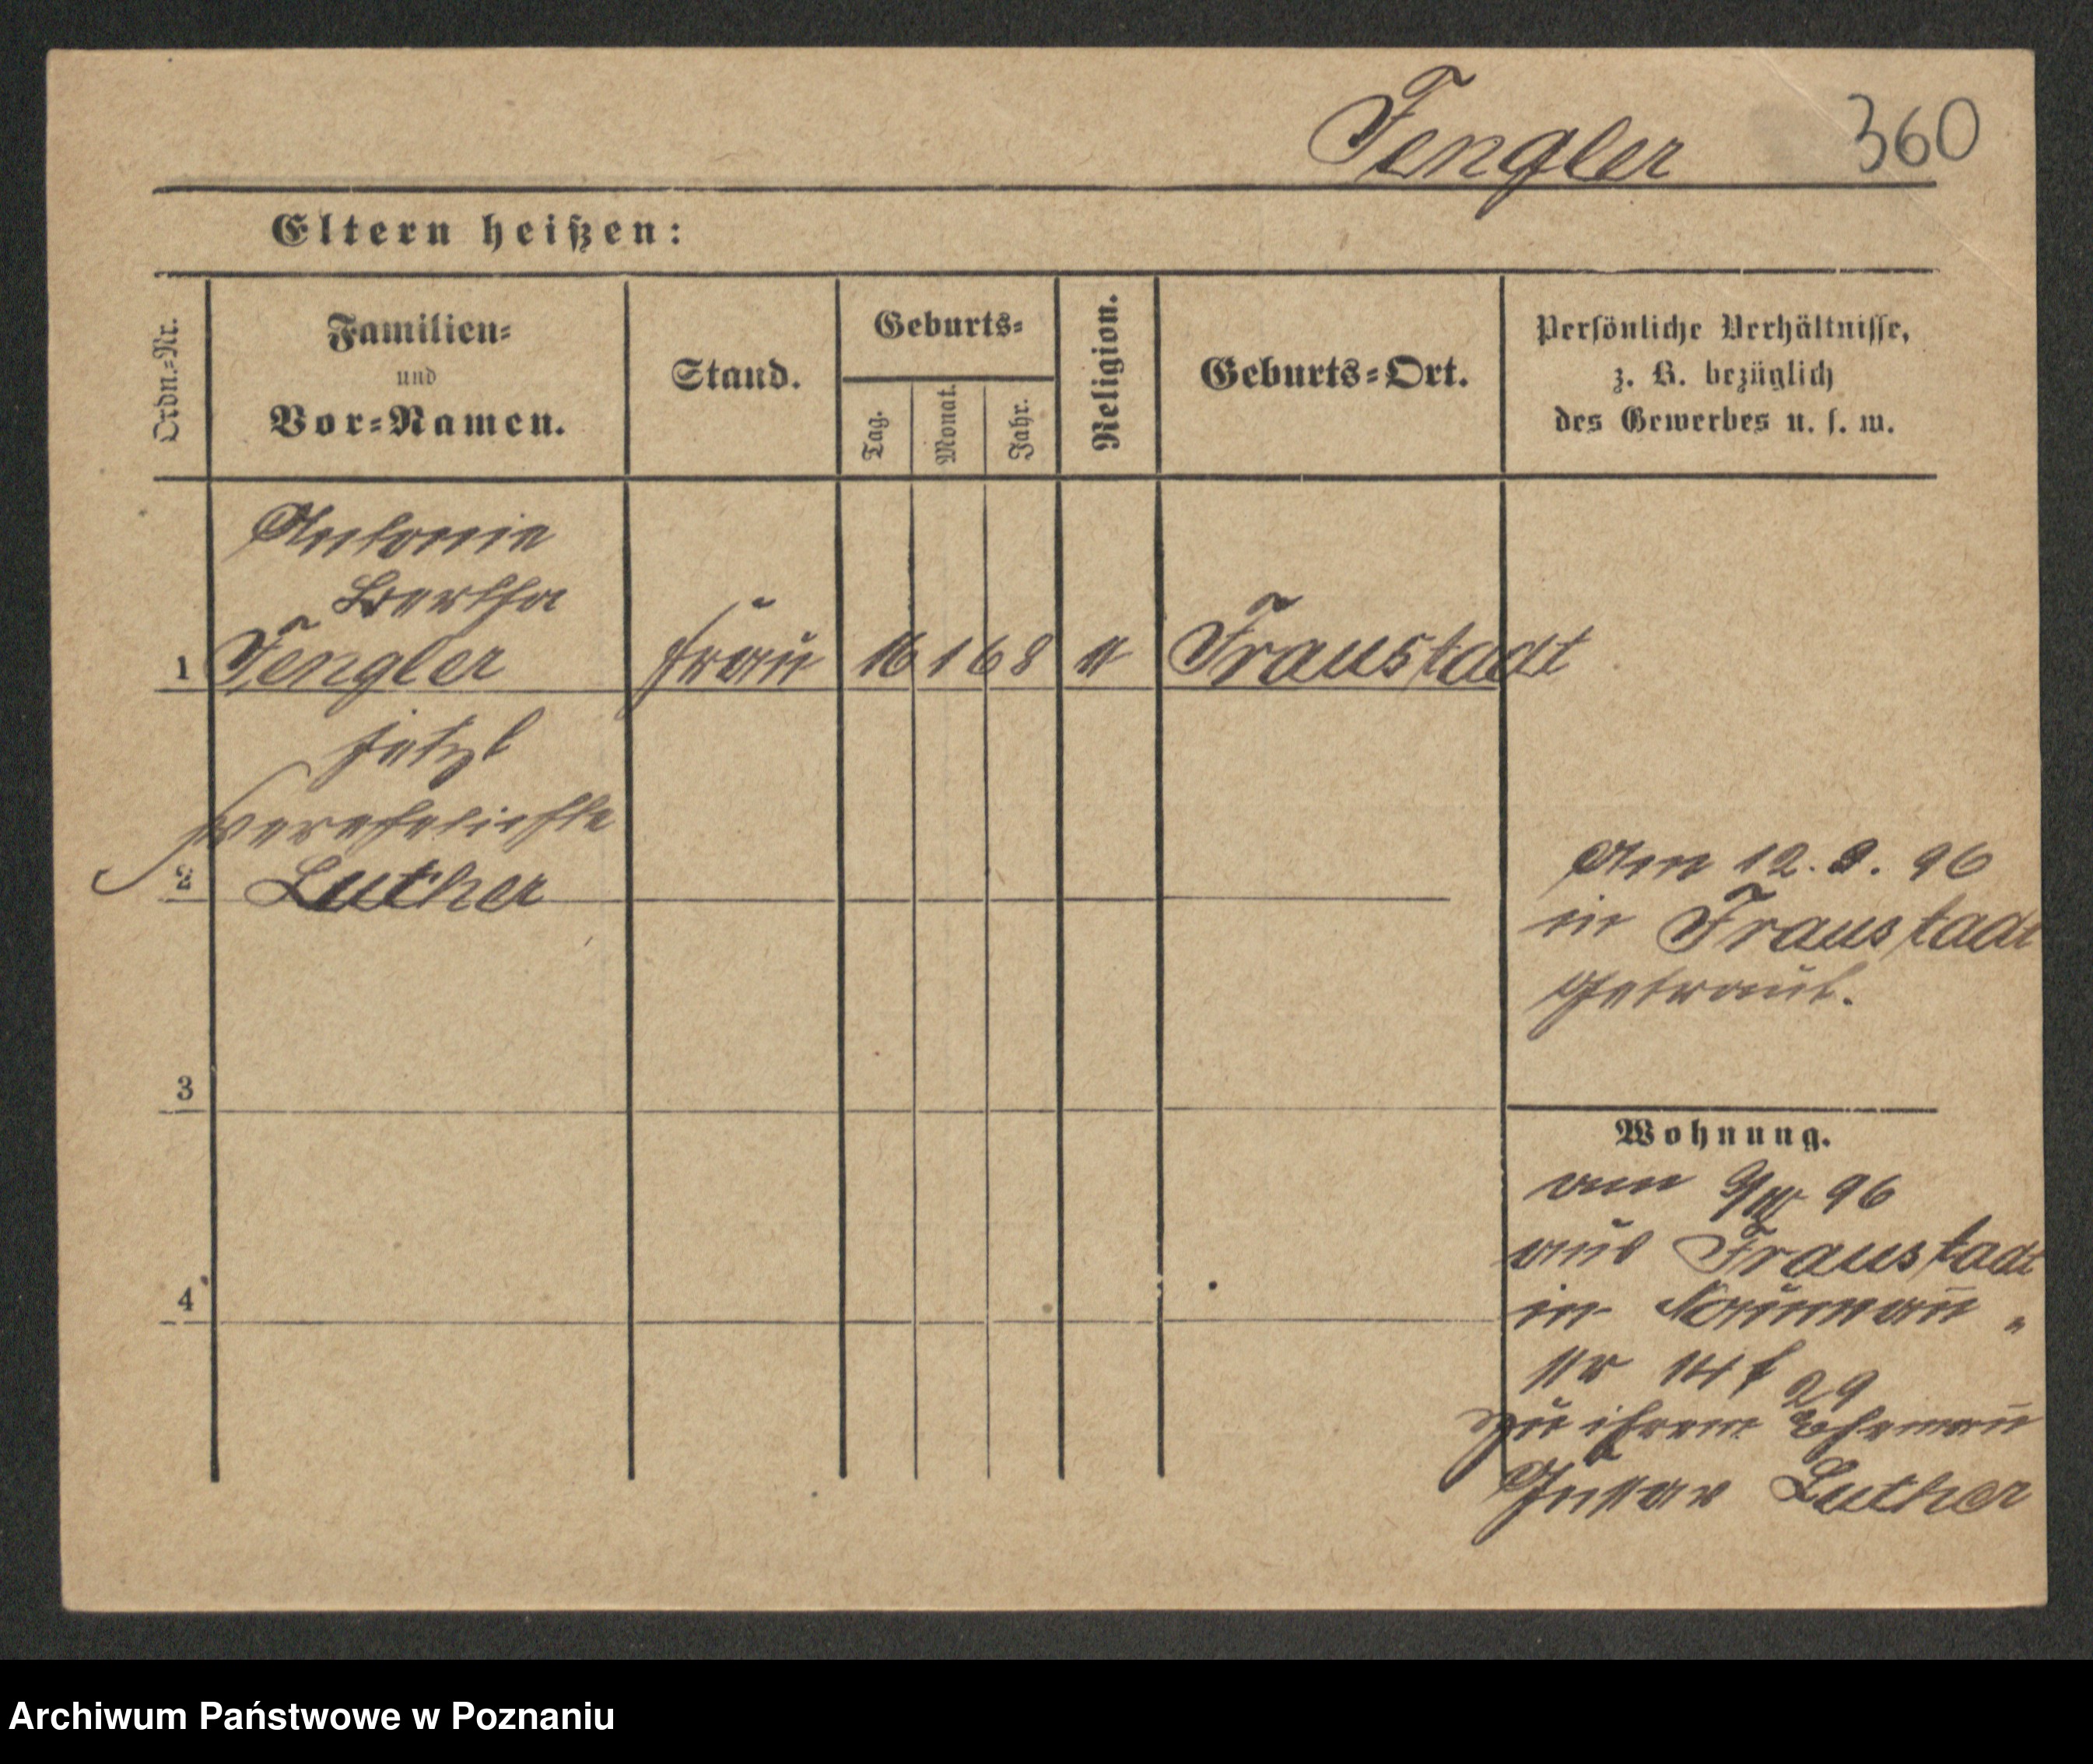 Fengler 360
Eltern heißen:
Ordn.=Nr.
Familien=
und
Vor=Namen.
Stand.
Geburts=
Tag.
Monat.
Jahr.
Religion.
Geburts=Ort.
Persönliche Verhältnisse,
z. B. bezüglich
des Gewerbes u. s. w.
Antonie
Bertha
1 Fengler Frau 16 1 68 Fraustadt
jetzt
verehelichte
2 Luther
Am 12. 96
in Fraustadt
Getraut.
3
Wohnung.
96
aus Fraustadt
4
in
Nr 29
zu ihrem Eheman
Luther
Archiwum Państwowe w Poznaniu